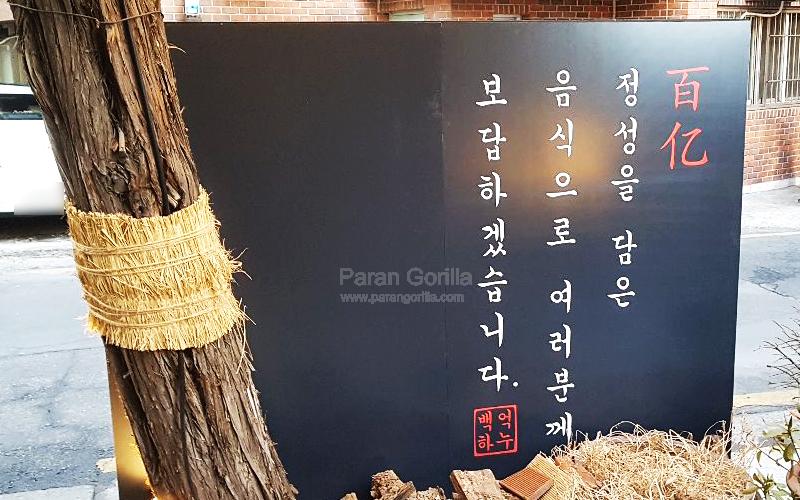 百亿
정성을 담은
음식으로 여러분께
보답하겠습니다.
백억
하누
Paran Gorilla
www.parangorilla.com